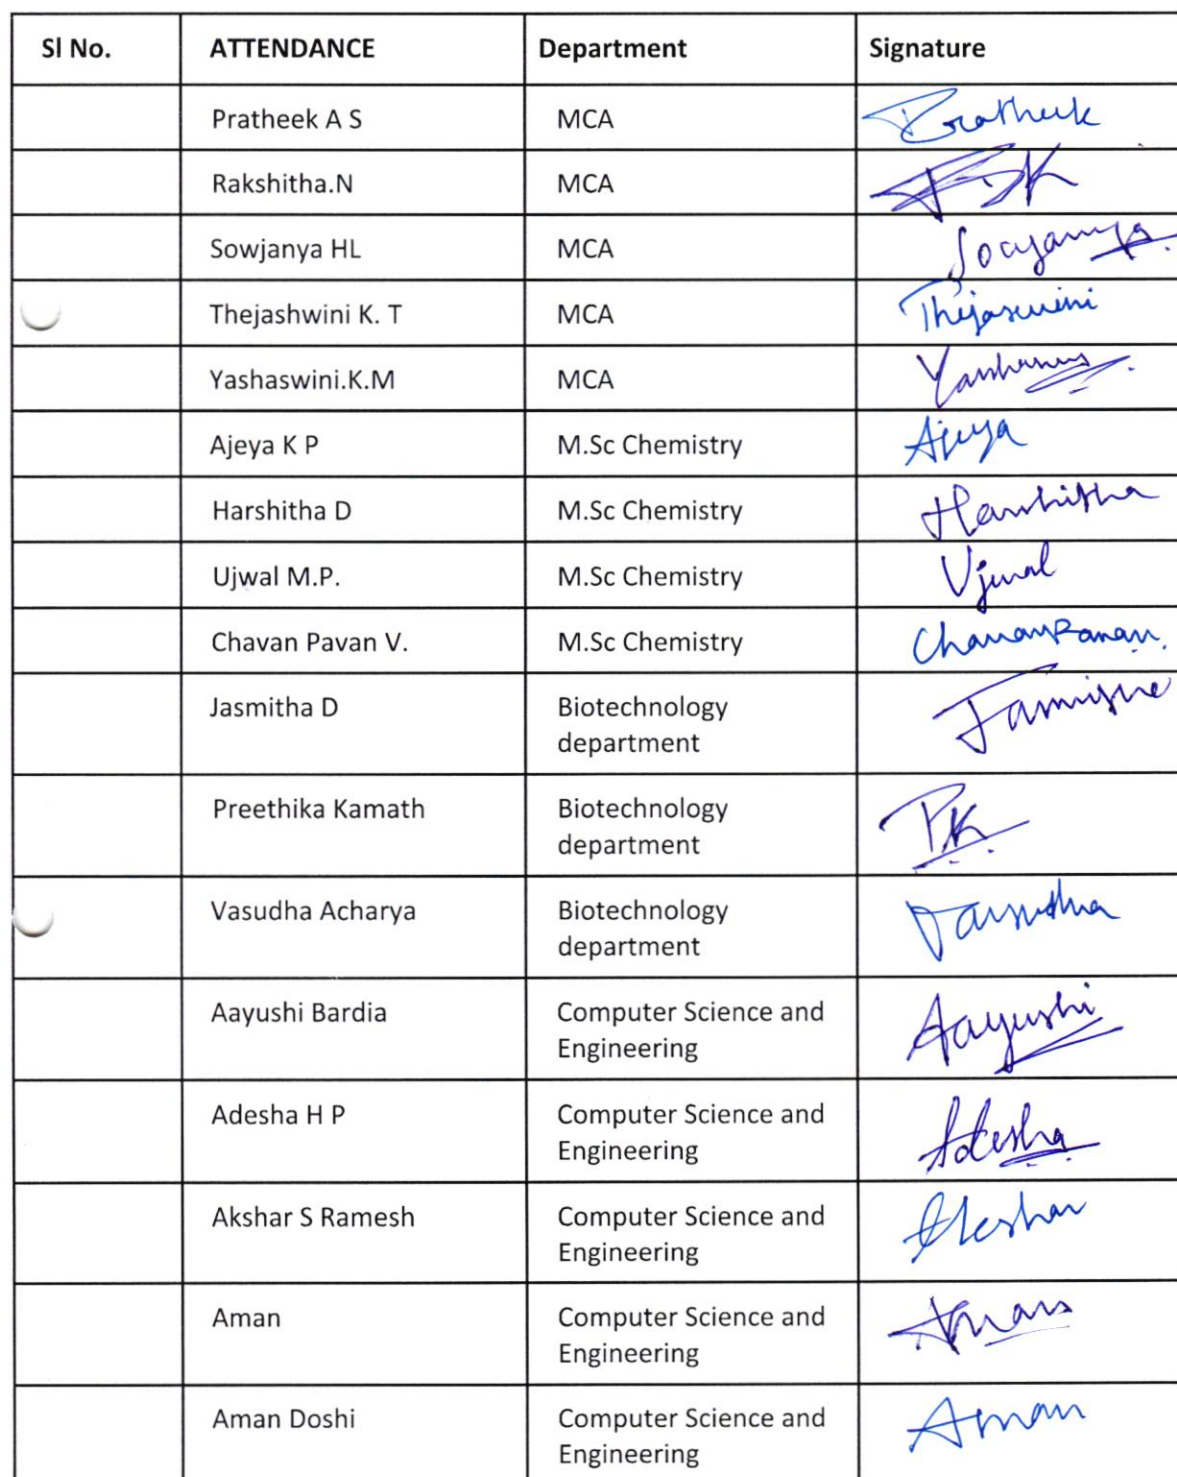 Sl No. ATTENDANCE Department Signature
Pratheek A S MCA Pratheek
Rakshitha.N MCA
Sowjanya HL MCA Sowjanya
Thejashwini K. T MCA Thejaswini
Yashaswini.K.M MCA
Ajeya K P M.Sc Chemistry Ajeya
Harshitha D M.Sc Chemistry Harshitha
Ujwal M.P. M.Sc Chemistry Ujwal
Chavan Pavan V. M.Sc Chemistry
Jasmitha D Biotechnology
department
Preethika Kamath Biotechnology PK
department
Vasudha Acharya Biotechnology Vasudha
department
Aayushi Bardia Computer Science and Aayushi
Engineering
Adesha H P Computer Science and Adesha
Engineering
Akshar S Ramesh Computer Science and Akshar
Engineering
Aman Computer Science and Aman
Engineering
Aman Doshi Computer Science and Aman
Engineering